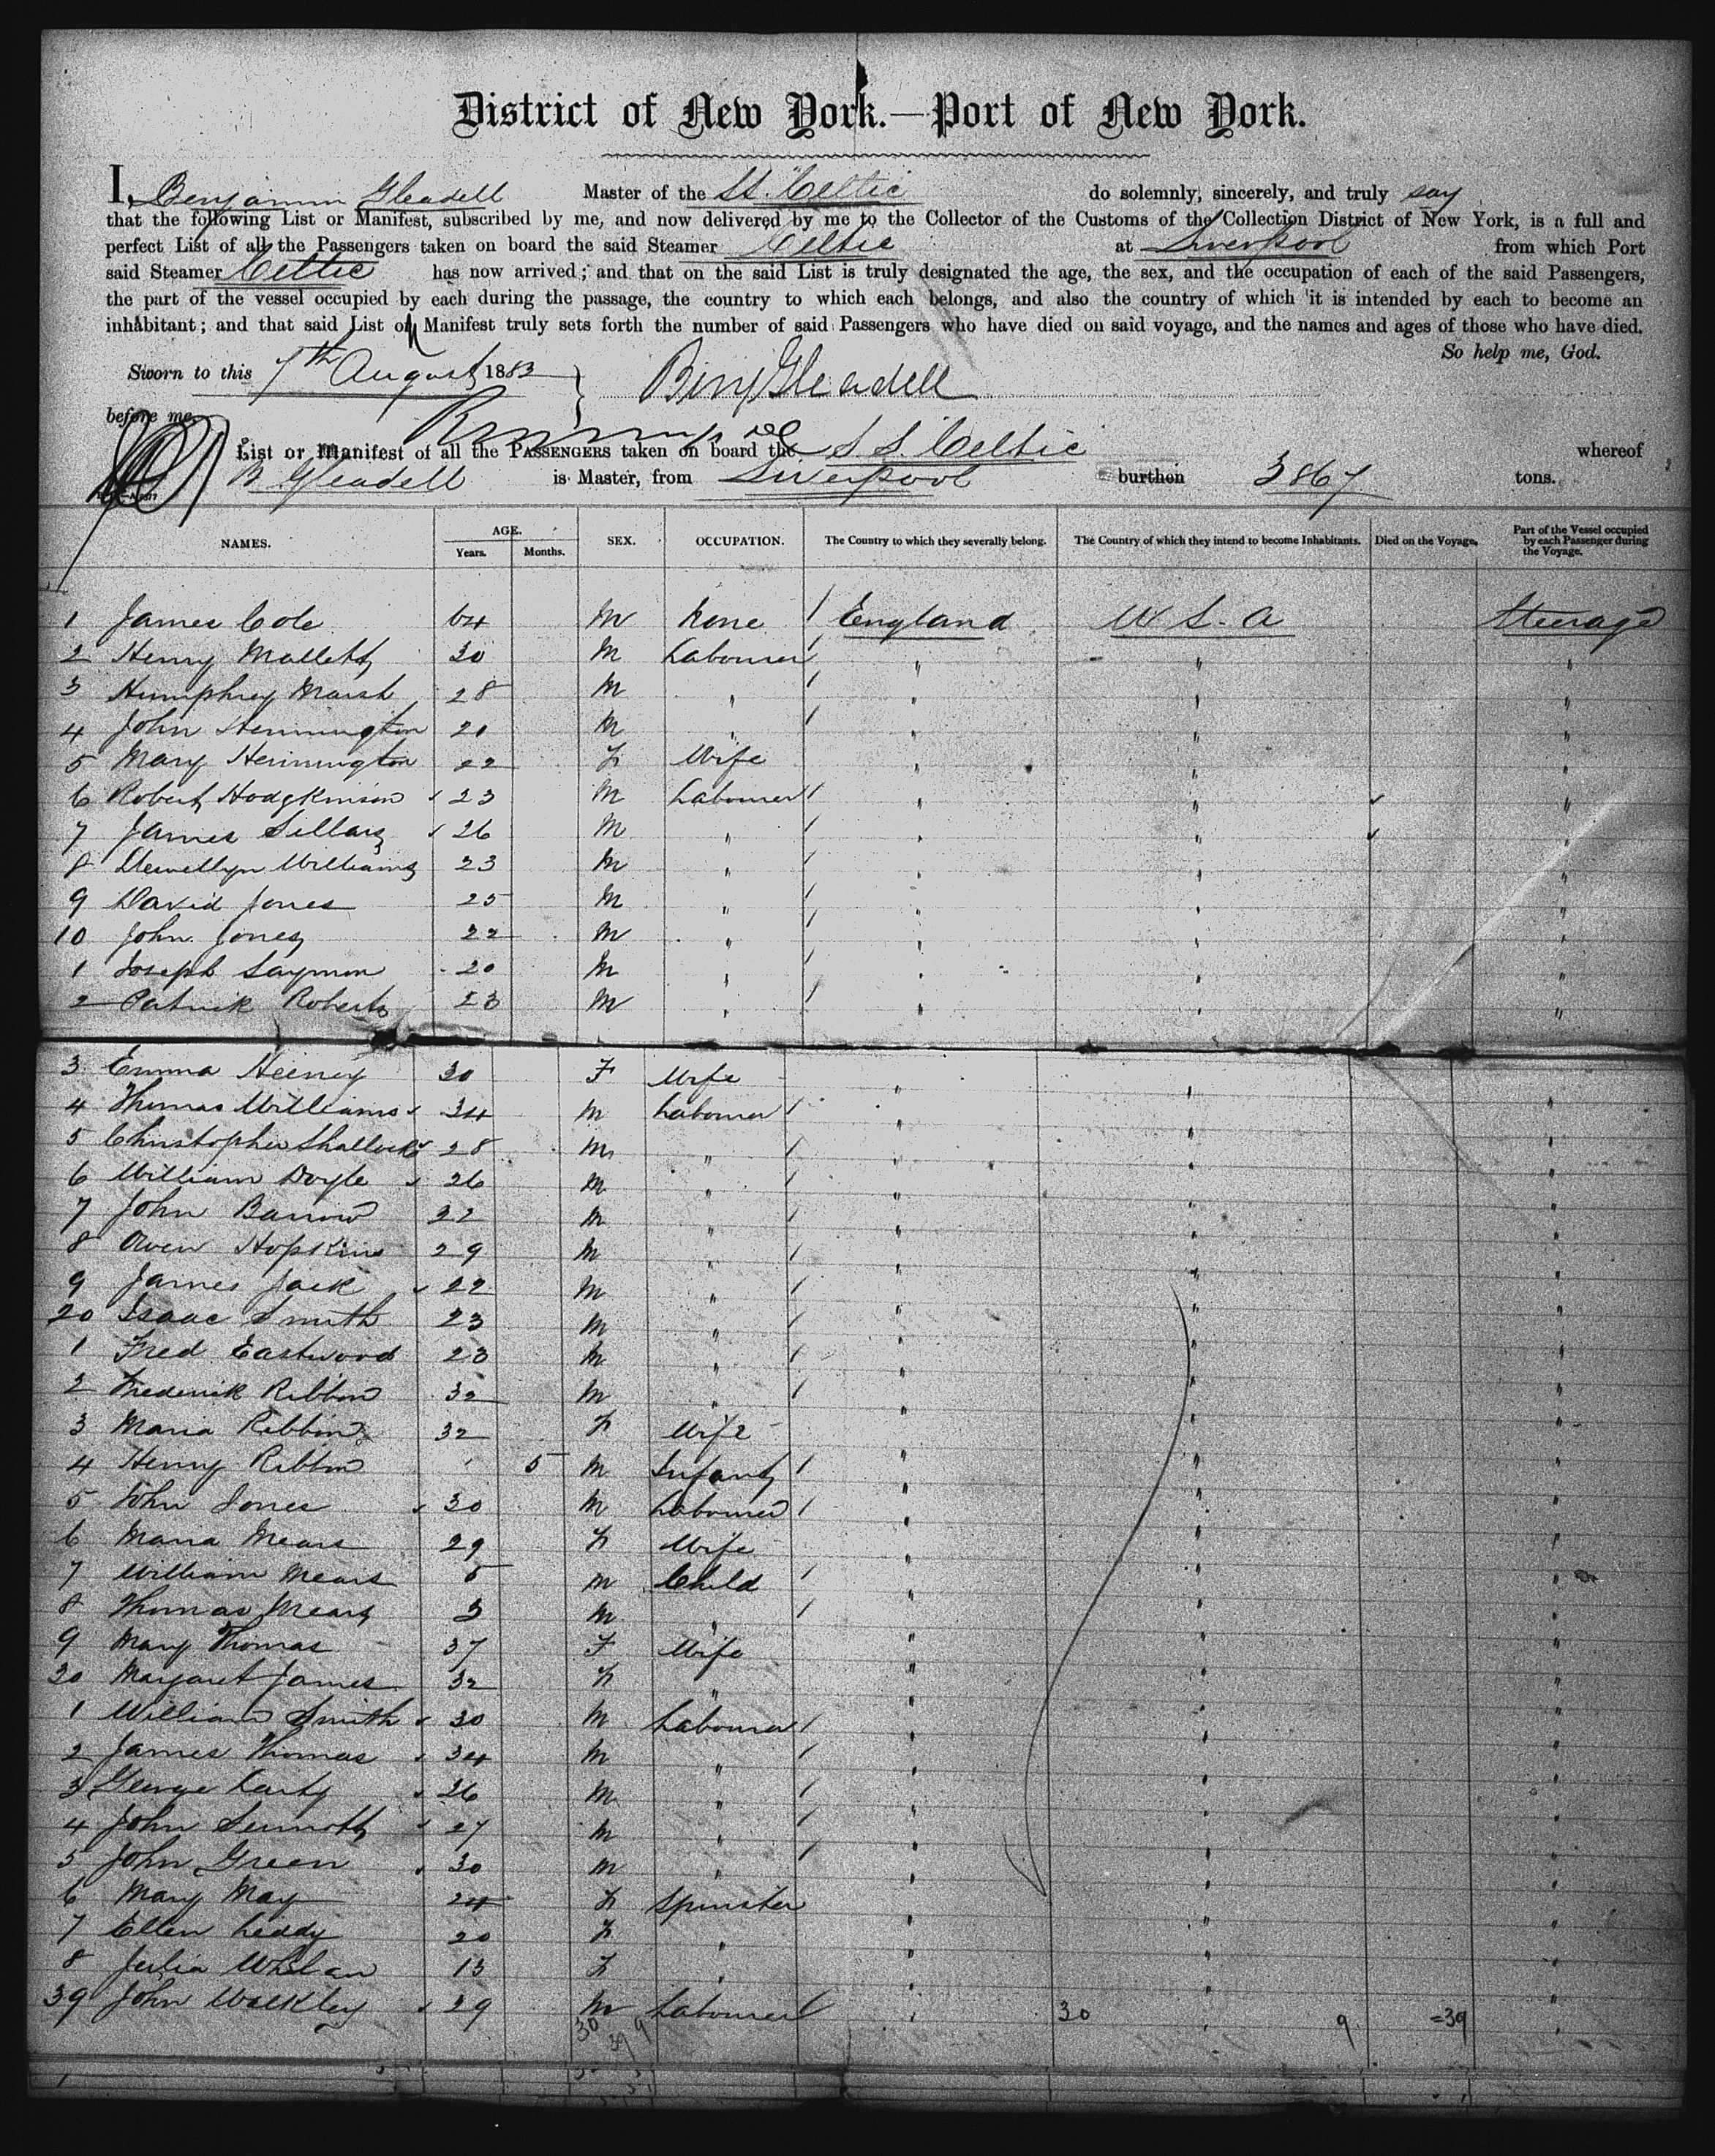 District of New York.—Port of New York.
I, Benjamin Gleadell Master of the SS. Celtic do solemnly, sincerely, and truly say
that the following List or Manifest, subscribed by me, and now delivered by me to the Collector of the Customs of the Collection District of New York, is a full and
perfect List of all the Passengers taken on board the said Steamer Celtic at Liverpool from which Port
said Steamer Celtic has now arrived; and that on the said List is truly designated the age, the sex, and the occupation of each of the said Passengers,
the part of the vessel occupied by each during the passage, the country to which each belongs, and also the country of which it is intended by each to become an
inhabitant; and that said List or Manifest truly sets forth the number of said Passengers who have died on said voyage, and the names and ages of those who have died.
So help me, God.
Sworn to this 7th August 1883 Benj Gleadell
before me,
List or Manifest of all the PASSENGERS taken on board the S S. Celtic whereof
B Gleadell is Master, from Liverpool burthen 3867 tons.
NAMES. AGE. Years. Months. SEX. OCCUPATION. The Country to which they severally belong. The Country of which they intend to become Inhabitants. Died on the Voyage. Part of the Vessel occupied by each Passenger during the Voyage.
1 James Cole 64 M None / England U S. A Steerage
2 Henry Mallett 30 M Labourer / " " "
3 Humphrey Marsh 28 M " / " " "
4 John Hennington 20 M " / " " "
5 Mary Hennington 22 F Wife " " "
6 Robert Hodgkinson ✓ 23 M Labourer / " ✓ "
7 James Sillars ✓ 26 M " / " ✓ "
8 Llewellyn Williams 23 M " / " " "
9 David Jones 25 M " / " " "
10 John Jones 22 M " / " " "
1 Joseph 20 M " / " " "
2 Patrick Roberts 23 M " / " " "
3 Emma Heeney 30 F Wife " " "
4 Thomas Williams ✓ 34 M Labourer / " " "
5 Christopher Shallock ✓ 28 M " / " " "
6 William Doyle ✓ 26 M " / " " "
7 John 22 M " / " " "
8 Owen Hopkins 29 M " / " " "
9 James Jack ✓ 22 M " / " " "
20 Isaac Smith 23 M " / " " "
1 Fred Eastwood 23 M " / " " "
2 Frederick Ribbin 32 M " / " " "
3 Maria Ribbin 32 F Wife " " "
4 Henry Ribbin 5 M Infant / " " "
5 John Jones ✓ 30 M Labourer / " " "
6 Maria Mears 29 F Wife " " "
7 William Mears 5 M Child / " " "
8 Thomas Mears 3 M " / " " "
9 Mary Thomas 37 F Wife " " "
30 Margaret James 32 F " " " "
1 William Smith ✓ 30 M Labourer / " " "
2 James Thomas ✓ 34 M " / " " "
3 George ✓ 26 M " / " " "
4 John Sinnott ✓ 27 M " / " " "
5 John Green ✓ 30 M " / " " "
6 Mary May 24 F Spinster " " "
7 Ellen Leddy 20 F " " " "
8 Julia Whelan 13 F " " " "
39 John Walkley ✓ 29 M Labourer / " 30 " 9 =39 "
30 39 9